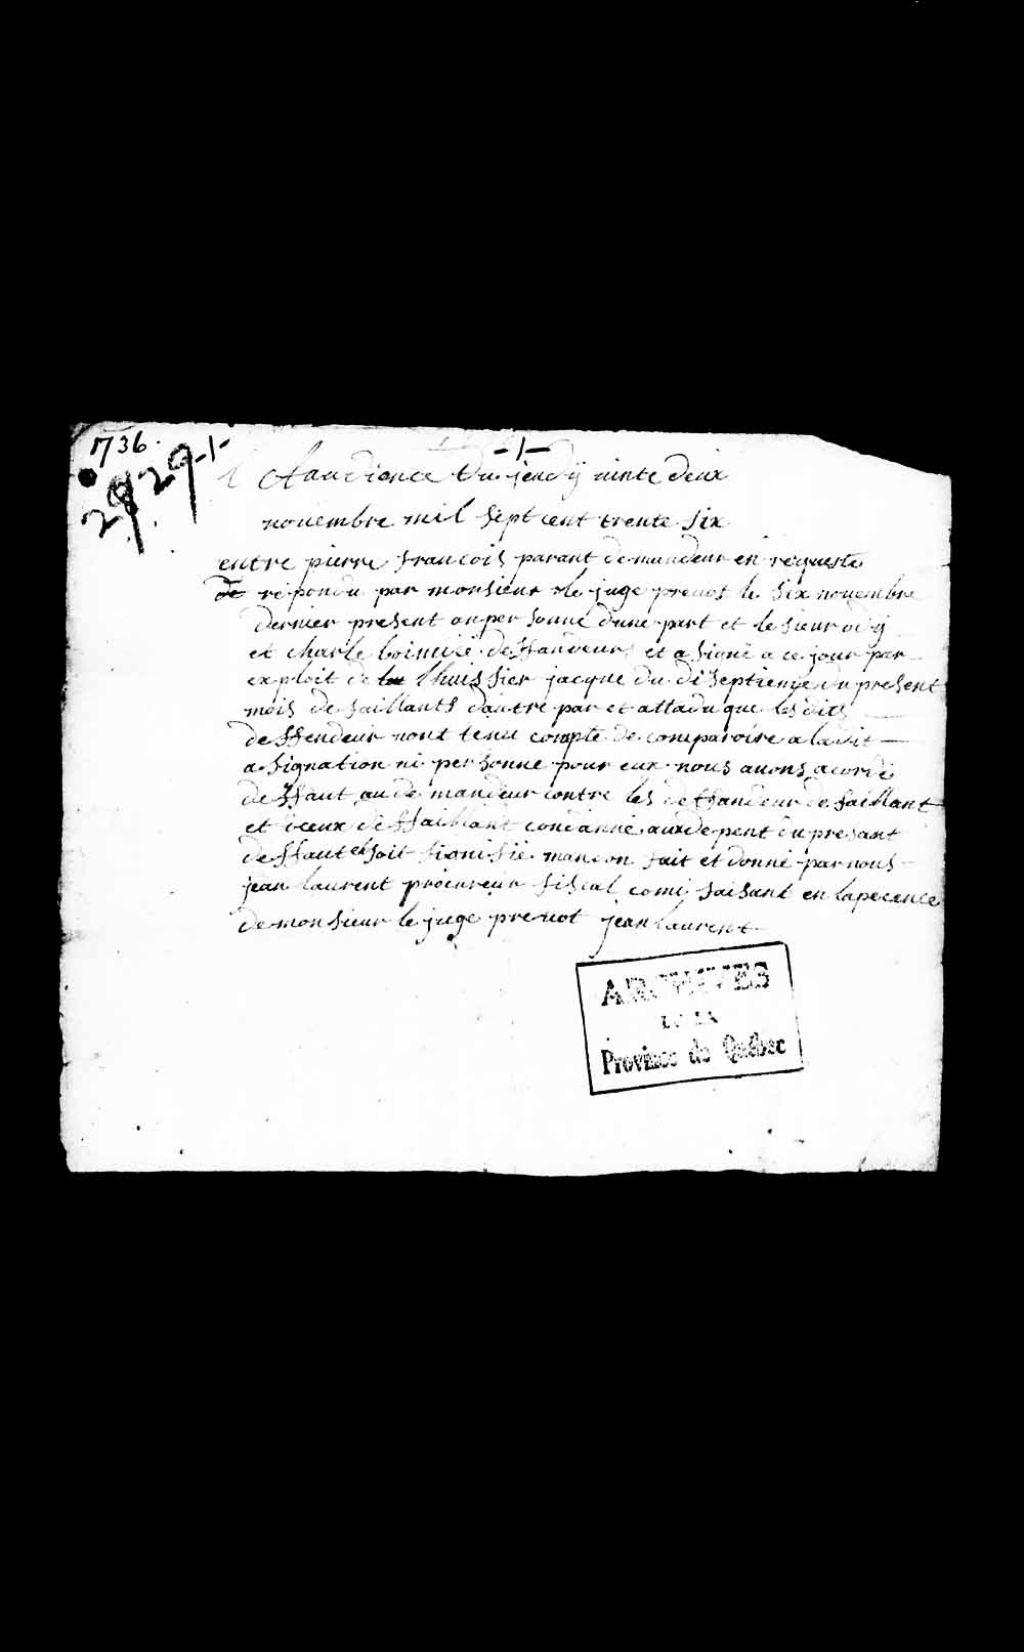 1736.
-1-
2929-1-
Laudience du jeudy vinte deux
nouembre mil sept cent trente six
entre pierre francois parant demandeur en requeste
de repondu par monsieur le juge preuos le six nouembre
dernier present an personne dune part et le sieur
et charle deffandeurs et a signé a ce jour par
exploit de lhuissier jacque du diseptieme du present
mois defaillants dautre par et attadu que les dits
deffendeur nont tenu compte de comparoire a ladit
asignation ni personne pour eux nous auons acordé
deffaut au demandeur contre les deffandeur defaillant
et iceux deffaillant condanné aux depent du presant
deffaut et soit sionifié mandon fait et donné par nous
jean laurent procureur fiscal comi faisant en lapecence
de monsieur le juge preuot jean laurent
ARCHIVES
DE LA
Province de Québec